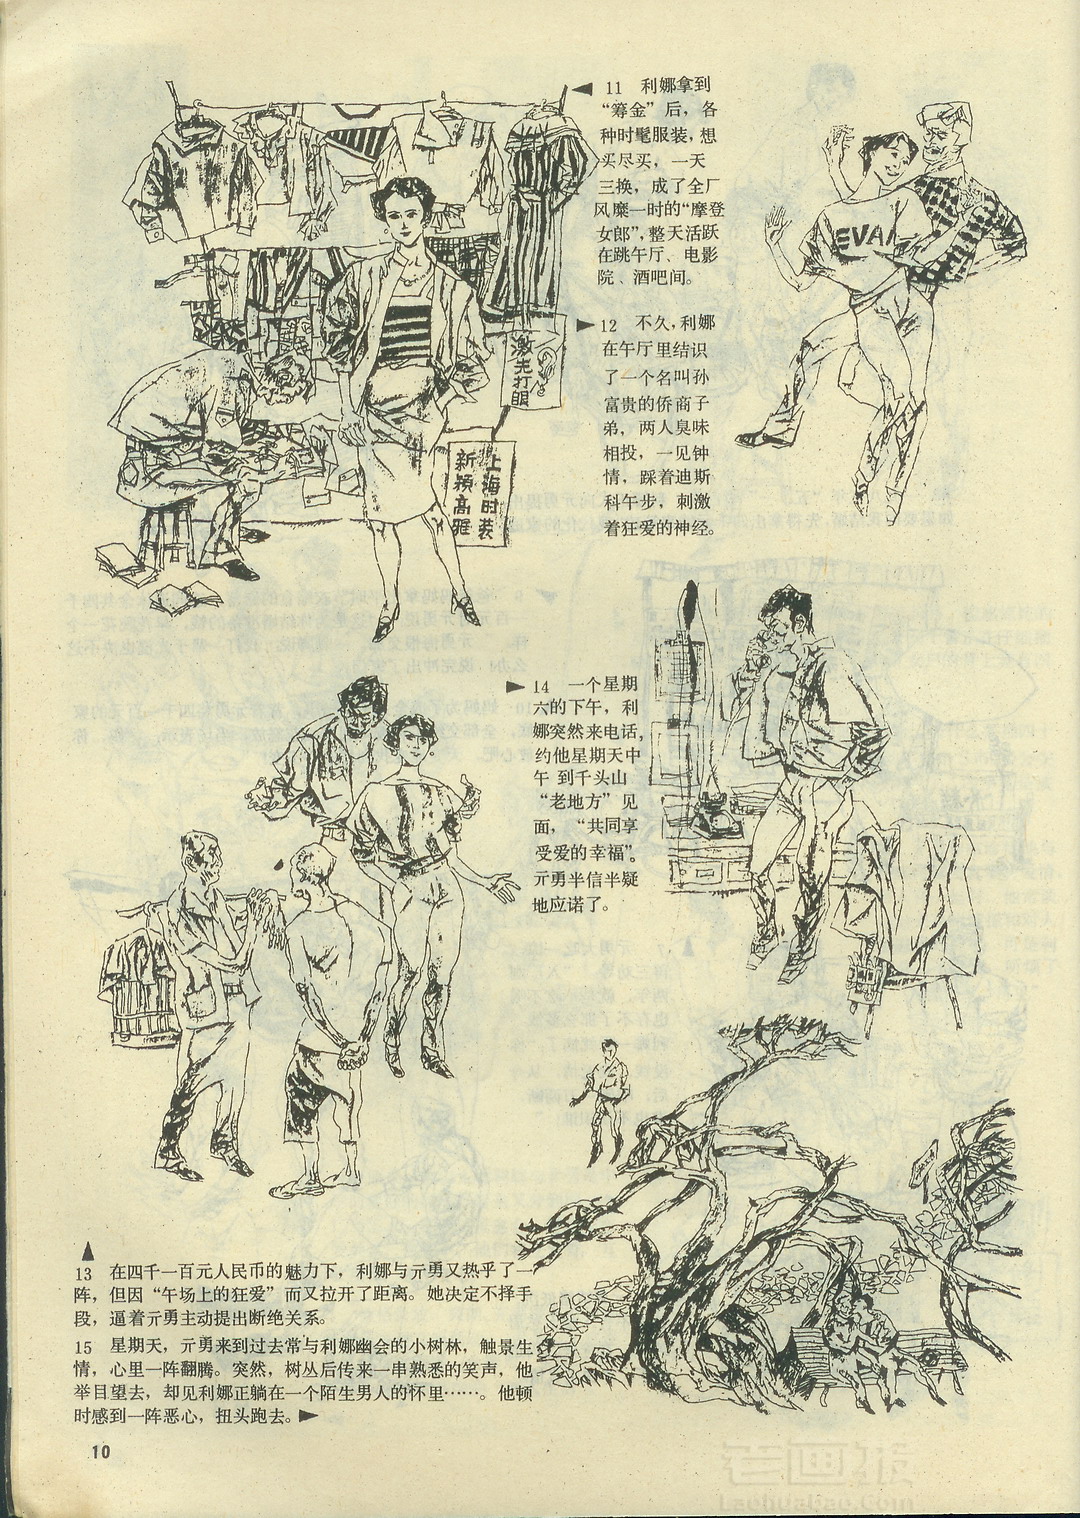 11 利娜拿到
“筹金”后，各
种时髦服装，想
买尽买，一天
三换，成了全厂
风糜一时的“摩登
女郎”，整天活跃
在跳午厅、电影
院、酒吧间。
12 不久，利娜
在午厅里结识
了一个名叫孙
富贵的侨商子
弟，两人臭味
相投，一见钟
情，踩着迪斯
科午步，刺激
着狂爱的神经。
EVA
激光打眼
上海时装
新颖高雅
14 一个星期
六的下午，利
娜突然来电话，
约他星期天中
午到千头山
“老地方”见
面，“共同享
受爱的幸福”。
亓勇半信半疑
地应诺了。
13 在四千一百元人民币的魅力下，利娜与亓勇又热乎了一
阵，但因“午场上的狂爱”而又拉开了距离。她决定不择手
段，逼着亓勇主动提出断绝关系。
15 星期天，亓勇来到过去常与利娜幽会的小树林，触景生
情，心里一阵翻腾。突然，树丛后传来一串熟悉的笑声，他
举目望去，却见利娜正躺在一个陌生男人的怀里……。他顿
时感到一阵恶心，扭头跑去。
10
老画报
Laohuabao.Com